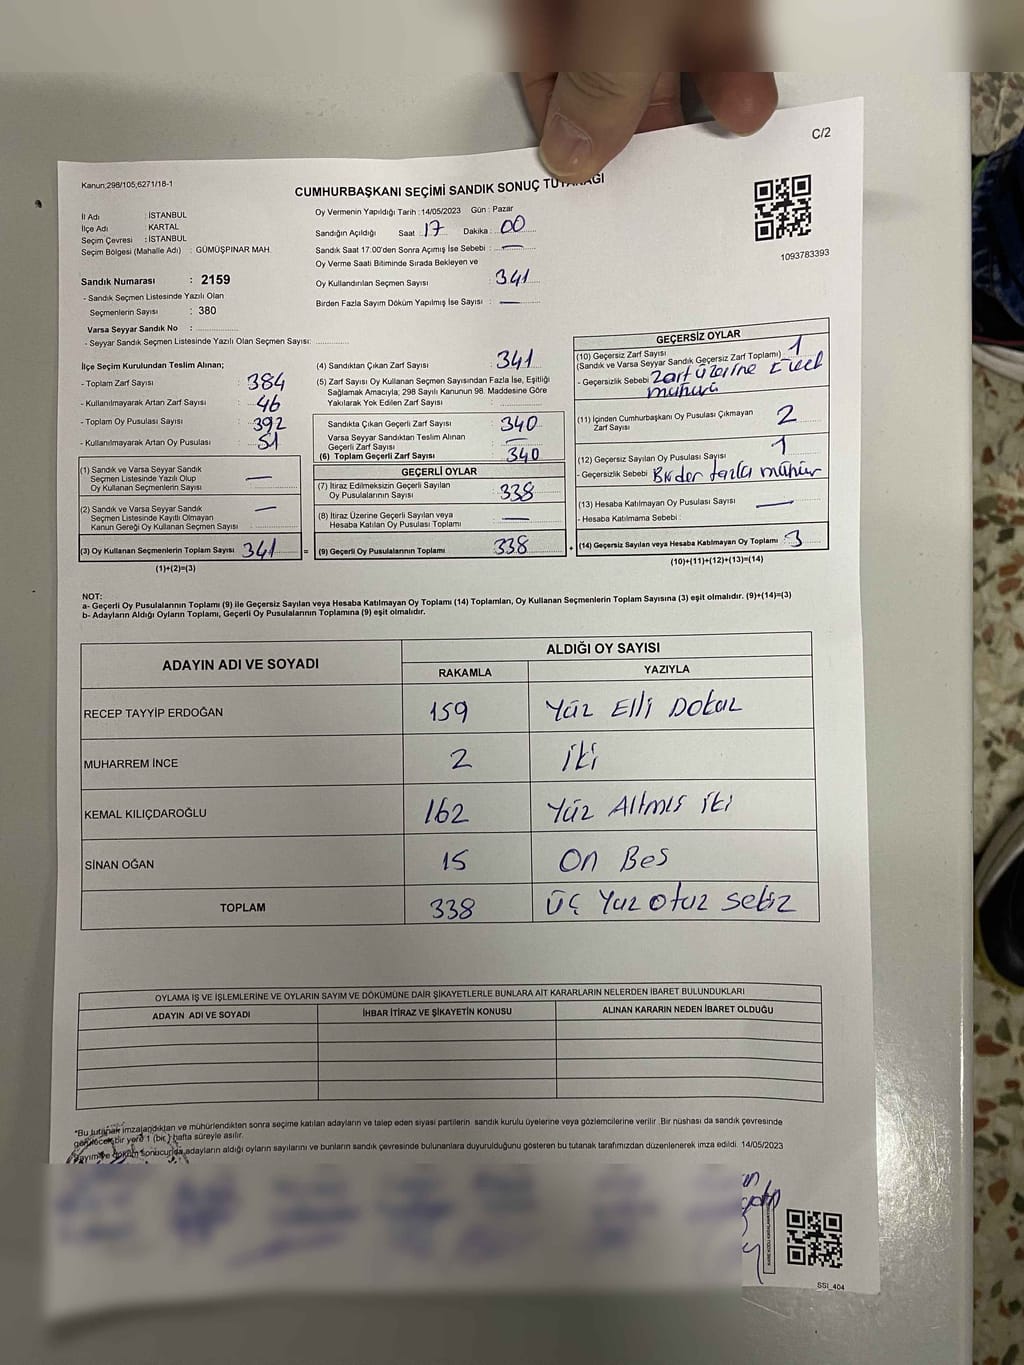 C/2
Kanun;298/105;6271/18-1
CUMHURBAŞKANI SEÇİMİ SANDIK SONUÇ
İl Adı : İSTANBUL
İlçe Adı : KARTAL
Seçim Çevresi : İSTANBUL
Seçim Bölgesi (Mahalle Adı) : GÜMÜŞPINAR MAH.
Oy Vermenin Yapıldığı Tarih : 14/05/2023 Gün : Pazar
Sandığın Açıldığı Saat 17 Dakika : 00
Sandık Saat 17.00'den Sonra Açımış İse Sebebi : —
Oy Verme Saati Bitiminde Sırada Bekleyen ve
Oy Kullandırılan Seçmen Sayısı : 341
Birden Fazla Sayım Döküm Yapılmış İse Sayısı : —
1093783393
Sandık Numarası : 2159
- Sandık Seçmen Listesinde Yazılı Olan
Seçmenlerin Sayısı : 380
Varsa Seyyar Sandık No :
- Seyyar Sandık Seçmen Listesinde Yazılı Olan Seçmen Sayısı:
İlçe Seçim Kurulundan Teslim Alınan;
- Toplam Zarf Sayısı : 384
- Kullanılmayarak Artan Zarf Sayısı : 46
- Toplam Oy Pusulası Sayısı : 392
- Kullanılmayarak Artan Oy Pusulası : 51
(1) Sandık ve Varsa Seyyar Sandık
Seçmen Listesinde Yazılı Olup
Oy Kullanan Seçmenlerin Sayısı : —
(2) Sandık ve Varsa Seyyar Sandık
Seçmen Listesinde Kayıtlı Olmayan
Kanun Gereği Oy Kullanan Seçmen Sayısı : —
(3) Oy Kullanan Seçmenlerin Toplam Sayısı : 341
(1)+(2)=(3)
(4) Sandıktan Çıkan Zarf Sayısı : 341
(5) Zarf Sayısı Oy Kullanan Seçmen Sayısından Fazla İse, Eşitliği
Sağlamak Amacıyla; 298 Sayılı Kanunun 98. Maddesine Göre
Yakılarak Yok Edilen Zarf Sayısı :
Sandıkta Çıkan Geçerli Zarf Sayısı : 340
Varsa Seyyar Sandıktan Teslim Alınan
Geçerli Zarf Sayısı : —
(6) Toplam Geçerli Zarf Sayısı : 340
GEÇERLİ OYLAR
(7) İtiraz Edilmeksizin Geçerli Sayılan
Oy Pusulalarının Sayısı : 338
(8) İtiraz Üzerine Geçerli Sayılan veya
Hesaba Katılan Oy Pusulası Toplamı : —
= (9) Geçerli Oy Pusulalarının Toplamı : 338
GEÇERSİZ OYLAR
(10) Geçersiz Zarf Sayısı
(Sandık ve Varsa Seyyar Sandık Geçersiz Zarf Toplamı) : 1
- Geçersizlik Sebebi : Zarf üzerine
(11) İçinden Cumhurbaşkanı Oy Pusulası Çıkmayan
Zarf Sayısı : 2
(12) Geçersiz Sayılan Oy Pusulası Sayısı : 1
- Geçersizlik Sebebi : Birden fazla mühür
(13) Hesaba Katılmayan Oy Pusulası Sayısı : —
- Hesaba Katılmama Sebebi :
+ (14) Geçersiz Sayılan veya Hesaba Katılmayan Oy Toplamı : 3
(10)+(11)+(12)+(13)=(14)
NOT:
a- Geçerli Oy Pusulalarının Toplamı (9) ile Geçersiz Sayılan veya Hesaba Katılmayan Oy Toplamı (14) Toplamları, Oy Kullanan Seçmenlerin Toplam Sayısına (3) eşit olmalıdır. (9)+(14)=(3)
b- Adayların Aldığı Oyların Toplamı, Geçerli Oy Pusulalarının Toplamına (9) eşit olmalıdır.
ADAYIN ADI VE SOYADI ALDIĞI OY SAYISI
RAKAMLA YAZIYLA
RECEP TAYYİP ERDOĞAN 159 Yüz Elli Dokuz
MUHARREM İNCE 2 iki
KEMAL KILIÇDAROĞLU 162 Yüz Altmış iki
SİNAN OĞAN 15 On Beş
TOPLAM 338 Üç Yüz otuz sekiz
OYLAMA İŞ VE İŞLEMLERİNE VE OYLARIN SAYIM VE DÖKÜMÜNE DAİR ŞİKAYETLERLE BUNLARA AİT KARARLARIN NELERDEN İBARET BULUNDUKLARI
ADAYIN ADI VE SOYADI İHBAR İTİRAZ VE ŞİKAYETİN KONUSU ALINAN KARARIN NEDEN İBARET OLDUĞU
*Bu tutanak imzalandıktan ve mühürlendikten sonra seçime katılan adayların ve talep eden siyasi partilerin sandık kurulu üyelerine veya gözlemcilerine verilir .Bir nüshası da sandık çevresinde
görülecek bir yere 1 (bir ) hafta süreyle asılır.
Sayım ve döküm sonucunda adayların aldığı oyların sayılarını ve bunların sandık çevresinde bulunanlara duyurulduğunu gösteren bu tutanak tarafımızdan düzenlenerek imza edildi. 14/05/2023
SSI_404